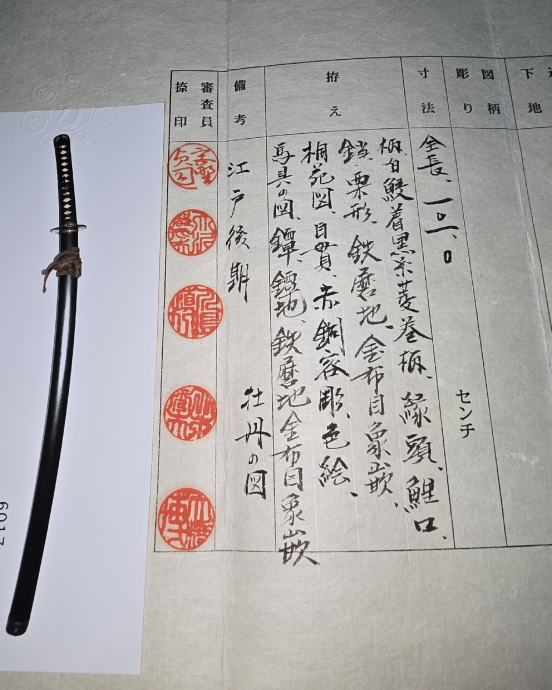 下地
図柄
彫り
寸法
全長、一〇一、〇
センチ
拵え
柄白鮫着黒糸菱巻柄、縁頭、鯉口、
鐺、栗形、鉄磨地、金布目象嵌、
桐花図、目貫、赤銅容彫、色絵、
馬具の図、鐔、鉄磨地金布目象嵌
牡丹の図
備考
江戸後期
審査員
捺印